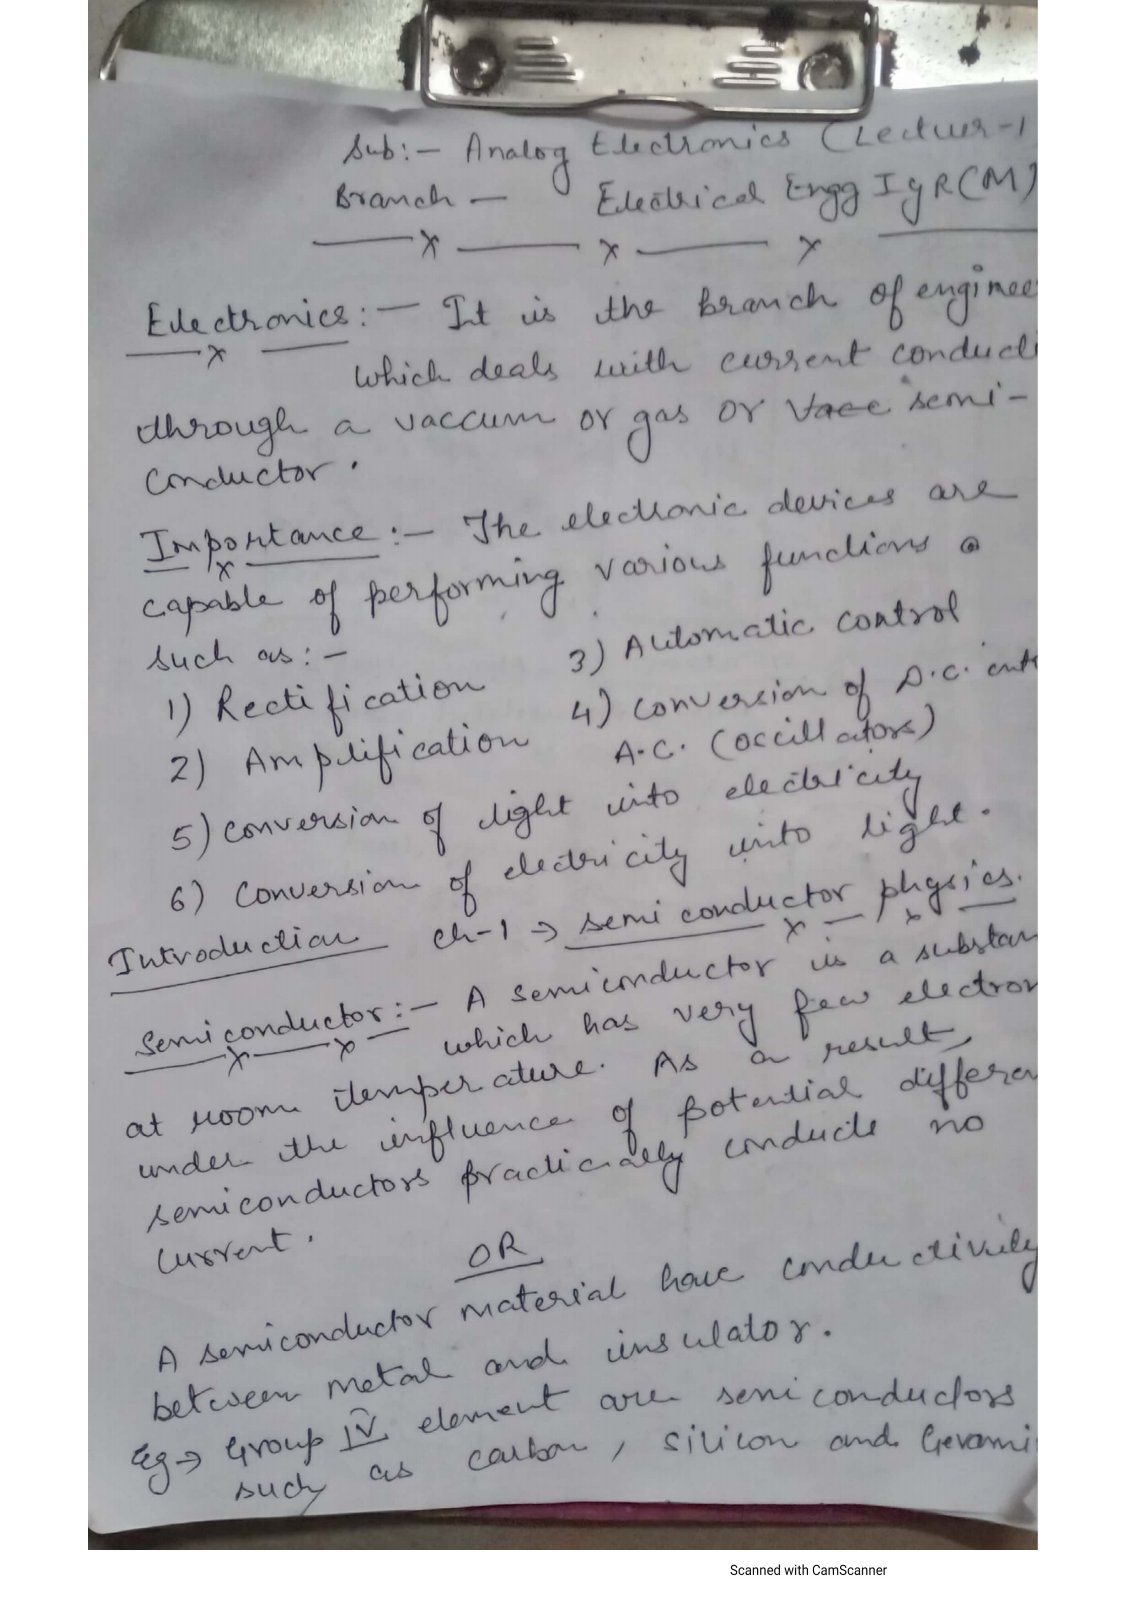 Sub:- Analog Electronics (Lectuer-1
Branch - Electrical Engg I yR(M)
Electronics:- It is the branch of enginee
which deals with current conducti
through a vaccum or gas or semi-
conductor.
Importance:- The electronic devices are
capable of performing various functions
such as:-
3) Automatic control
1) Rectification
4) conversion of D.C. into
2) Amplification
A.C. (occillators)
5) conversion of light into electricity
6) conversion of electricity into light.
Introduction ch-1 → semiconductor physics.
Semiconductor:- A semiconductor is a substan
which has very few electron
at room temperature. As a result,
under the influence of potential differen
semiconductors practically conducts no
current.
OR
A semiconductor material have conductivity
between metal and insulator.
Eg → Group IV element are semiconductors
such as carbon, silicon and Gerami
Scanned with CamScanner